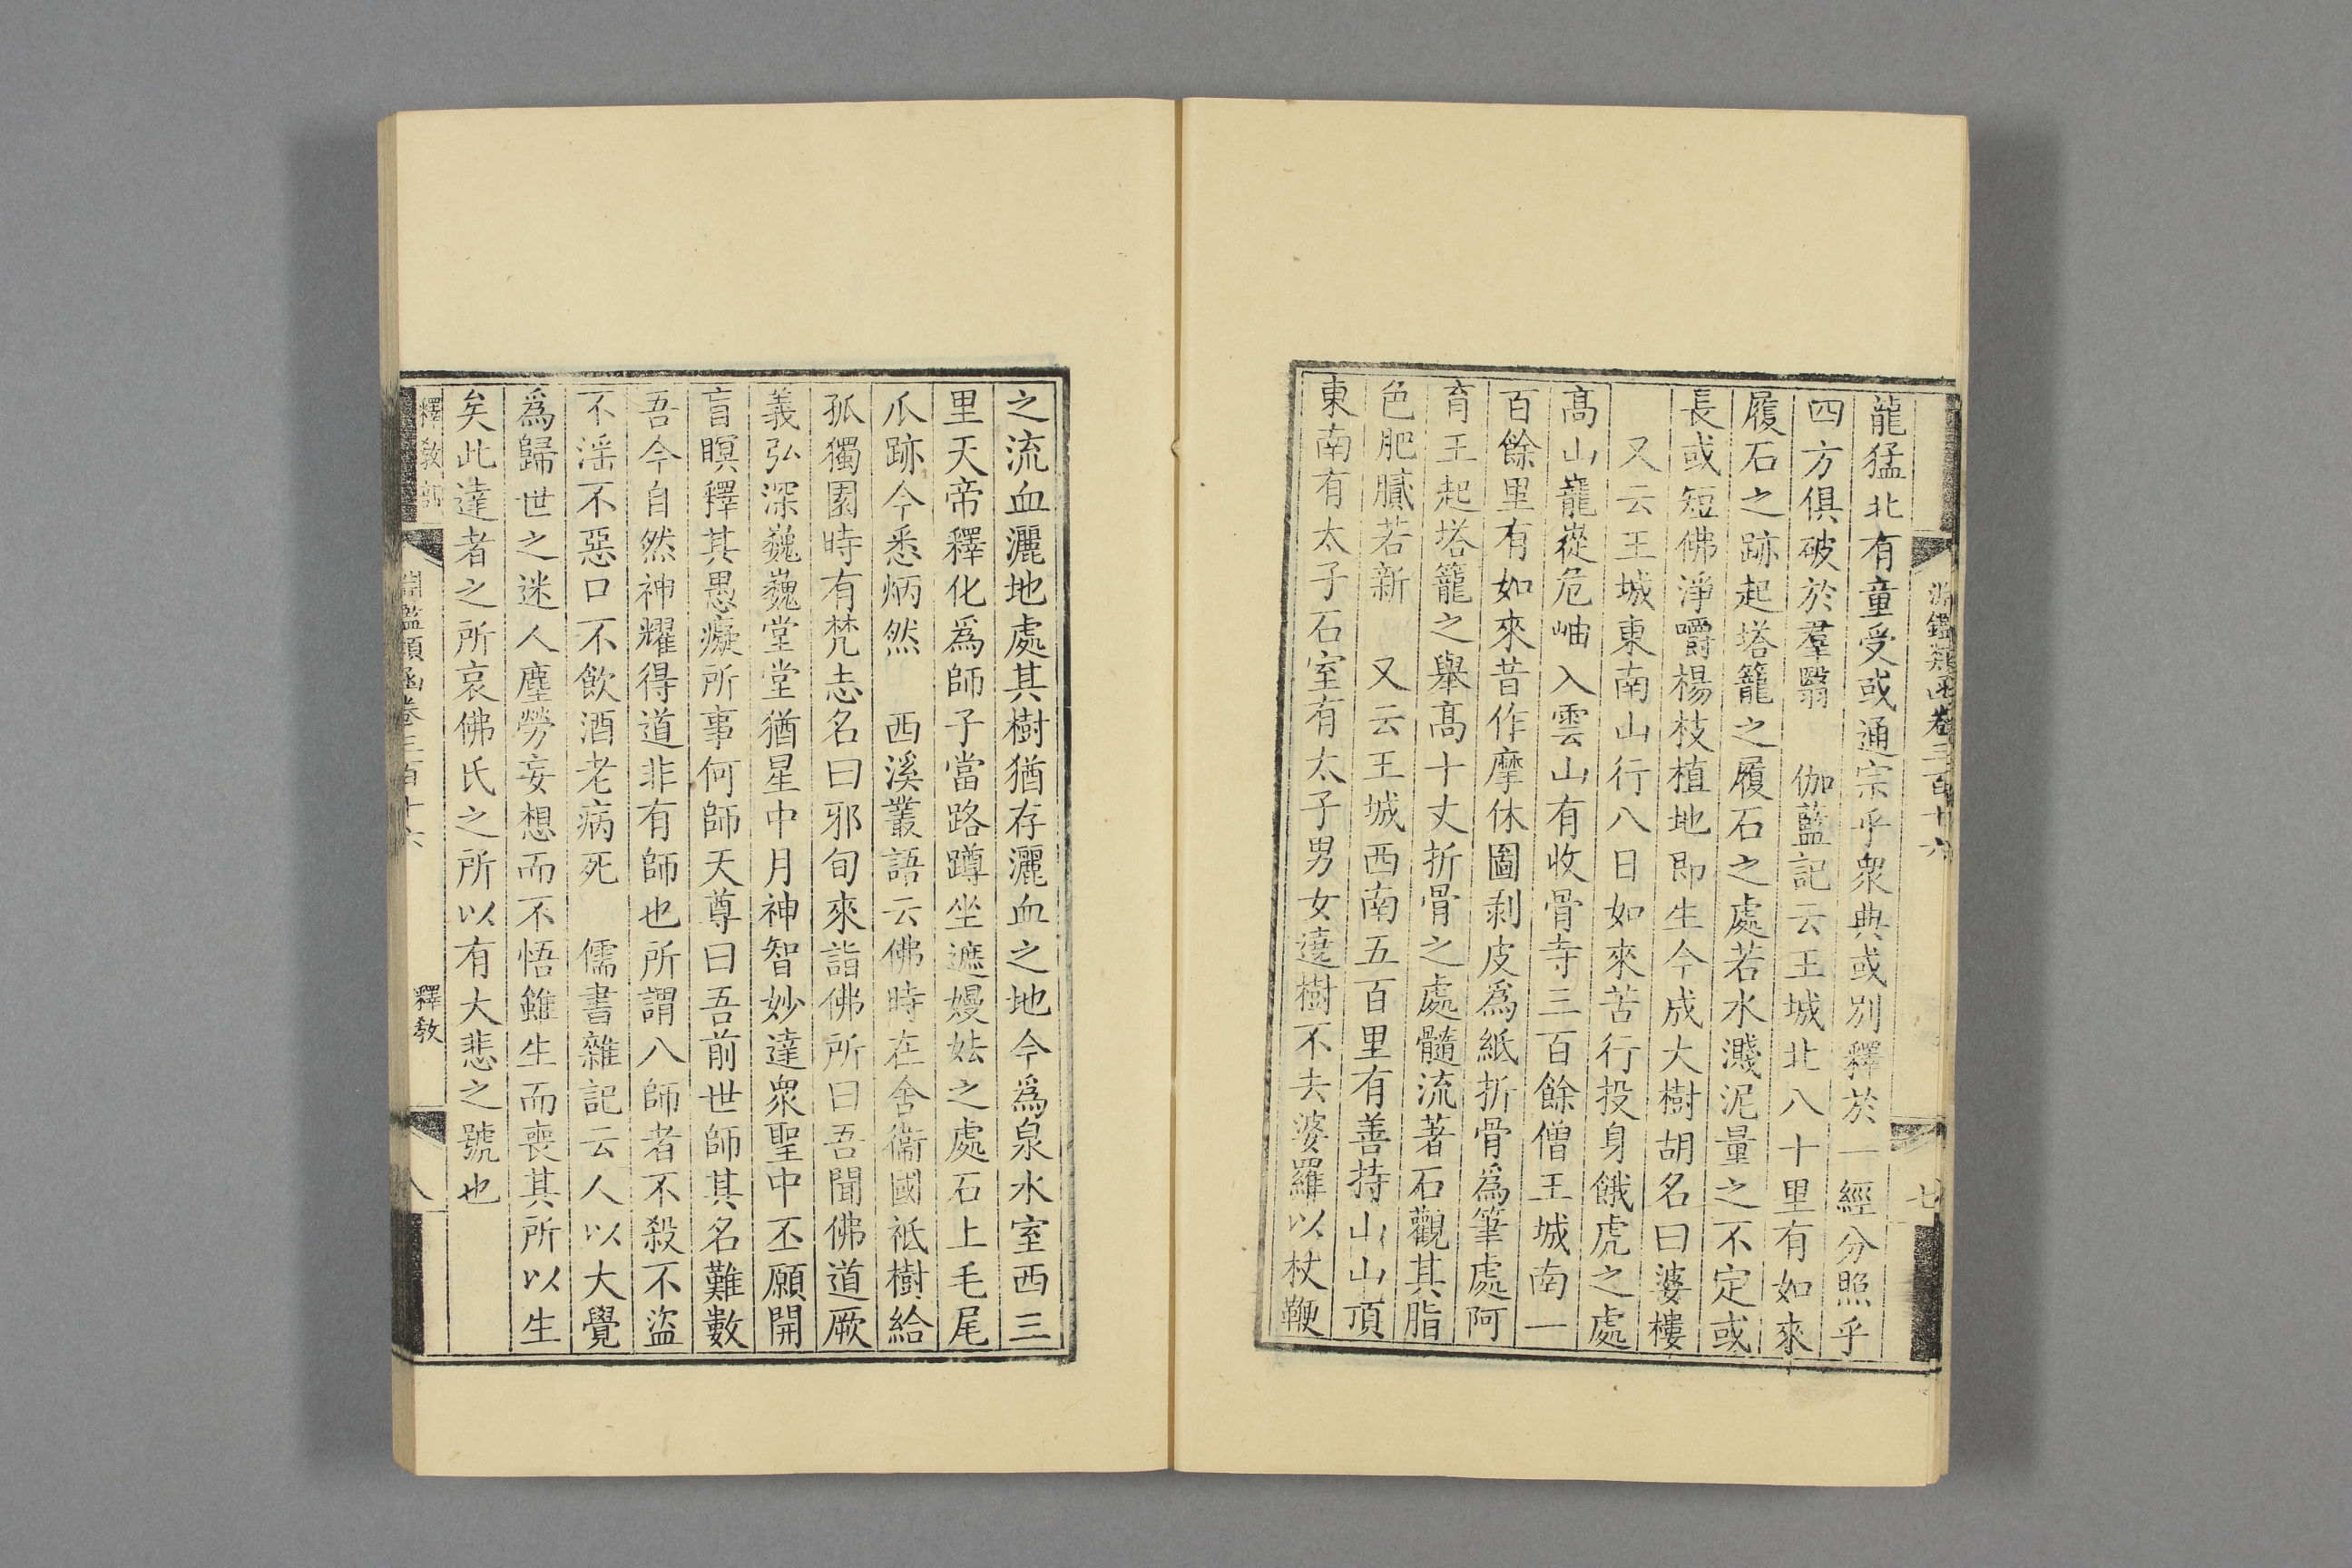 淵鑑類函卷三百十六
七
龍猛北有童受或通宗乎衆典或別釋於一經分照乎
四方俱破於羣翳　伽藍記云王城北八十里有如來
履石之跡起塔籠之履石之處若水濺泥量之不定或
長或短佛淨嚼楊枝植地即生今成大樹胡名曰婆樓
又云王城東南山行八日如來苦行投身餓虎之處
高山巃嵸危岫入雲山有收骨寺三百餘僧王城南一
百餘里有如來昔作摩休國剥皮爲紙折骨爲筆處阿
育王起塔籠之舉高十丈折骨之處髓流著石觀其脂
色肥膩若新　又云王城西南五百里有善持山山頂
東南有太子石室有太子男女遶樹不去婆羅以杖鞭
之流血灑地處其樹猶存灑血之地今爲泉水室西三
里天帝釋化爲師子當路蹲坐遮嫚妶之處石上毛尾
爪跡今悉炳然　西溪叢語云佛時在舍衞國祇樹給
孤獨園時有梵志名曰邪旬來詣佛所曰吾聞佛道厥
義弘深巍巍堂堂猶星中月神智妙達衆聖中丕願開
盲瞑釋其愚癡所事何師天尊曰吾前世師其名難數
吾今自然神耀得道非有師也所謂八師者不殺不盜
不滛不惡口不飲酒老病死　儒書雜記云人以大覺
爲歸世之迷人塵勞妄想而不悟雖生而喪其所以生
矣此達者之所哀佛氏之所以有大悲之號也
釋敎部
淵鑑類函卷三百十六
釋敎
八